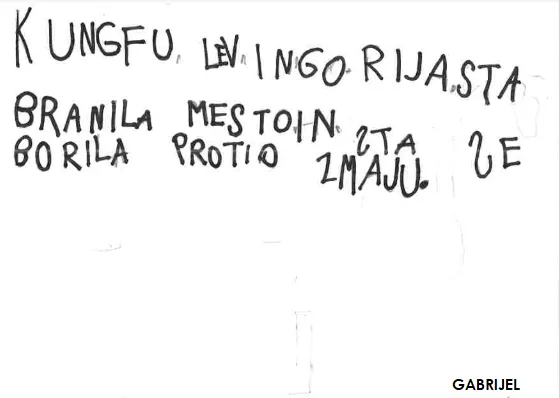 KUNGFU. LEV. INGO. RIJA.STA
BRANILA MESTOIN. STA SE
BORILA PROTIO ZMAJU.
GABRIJEL